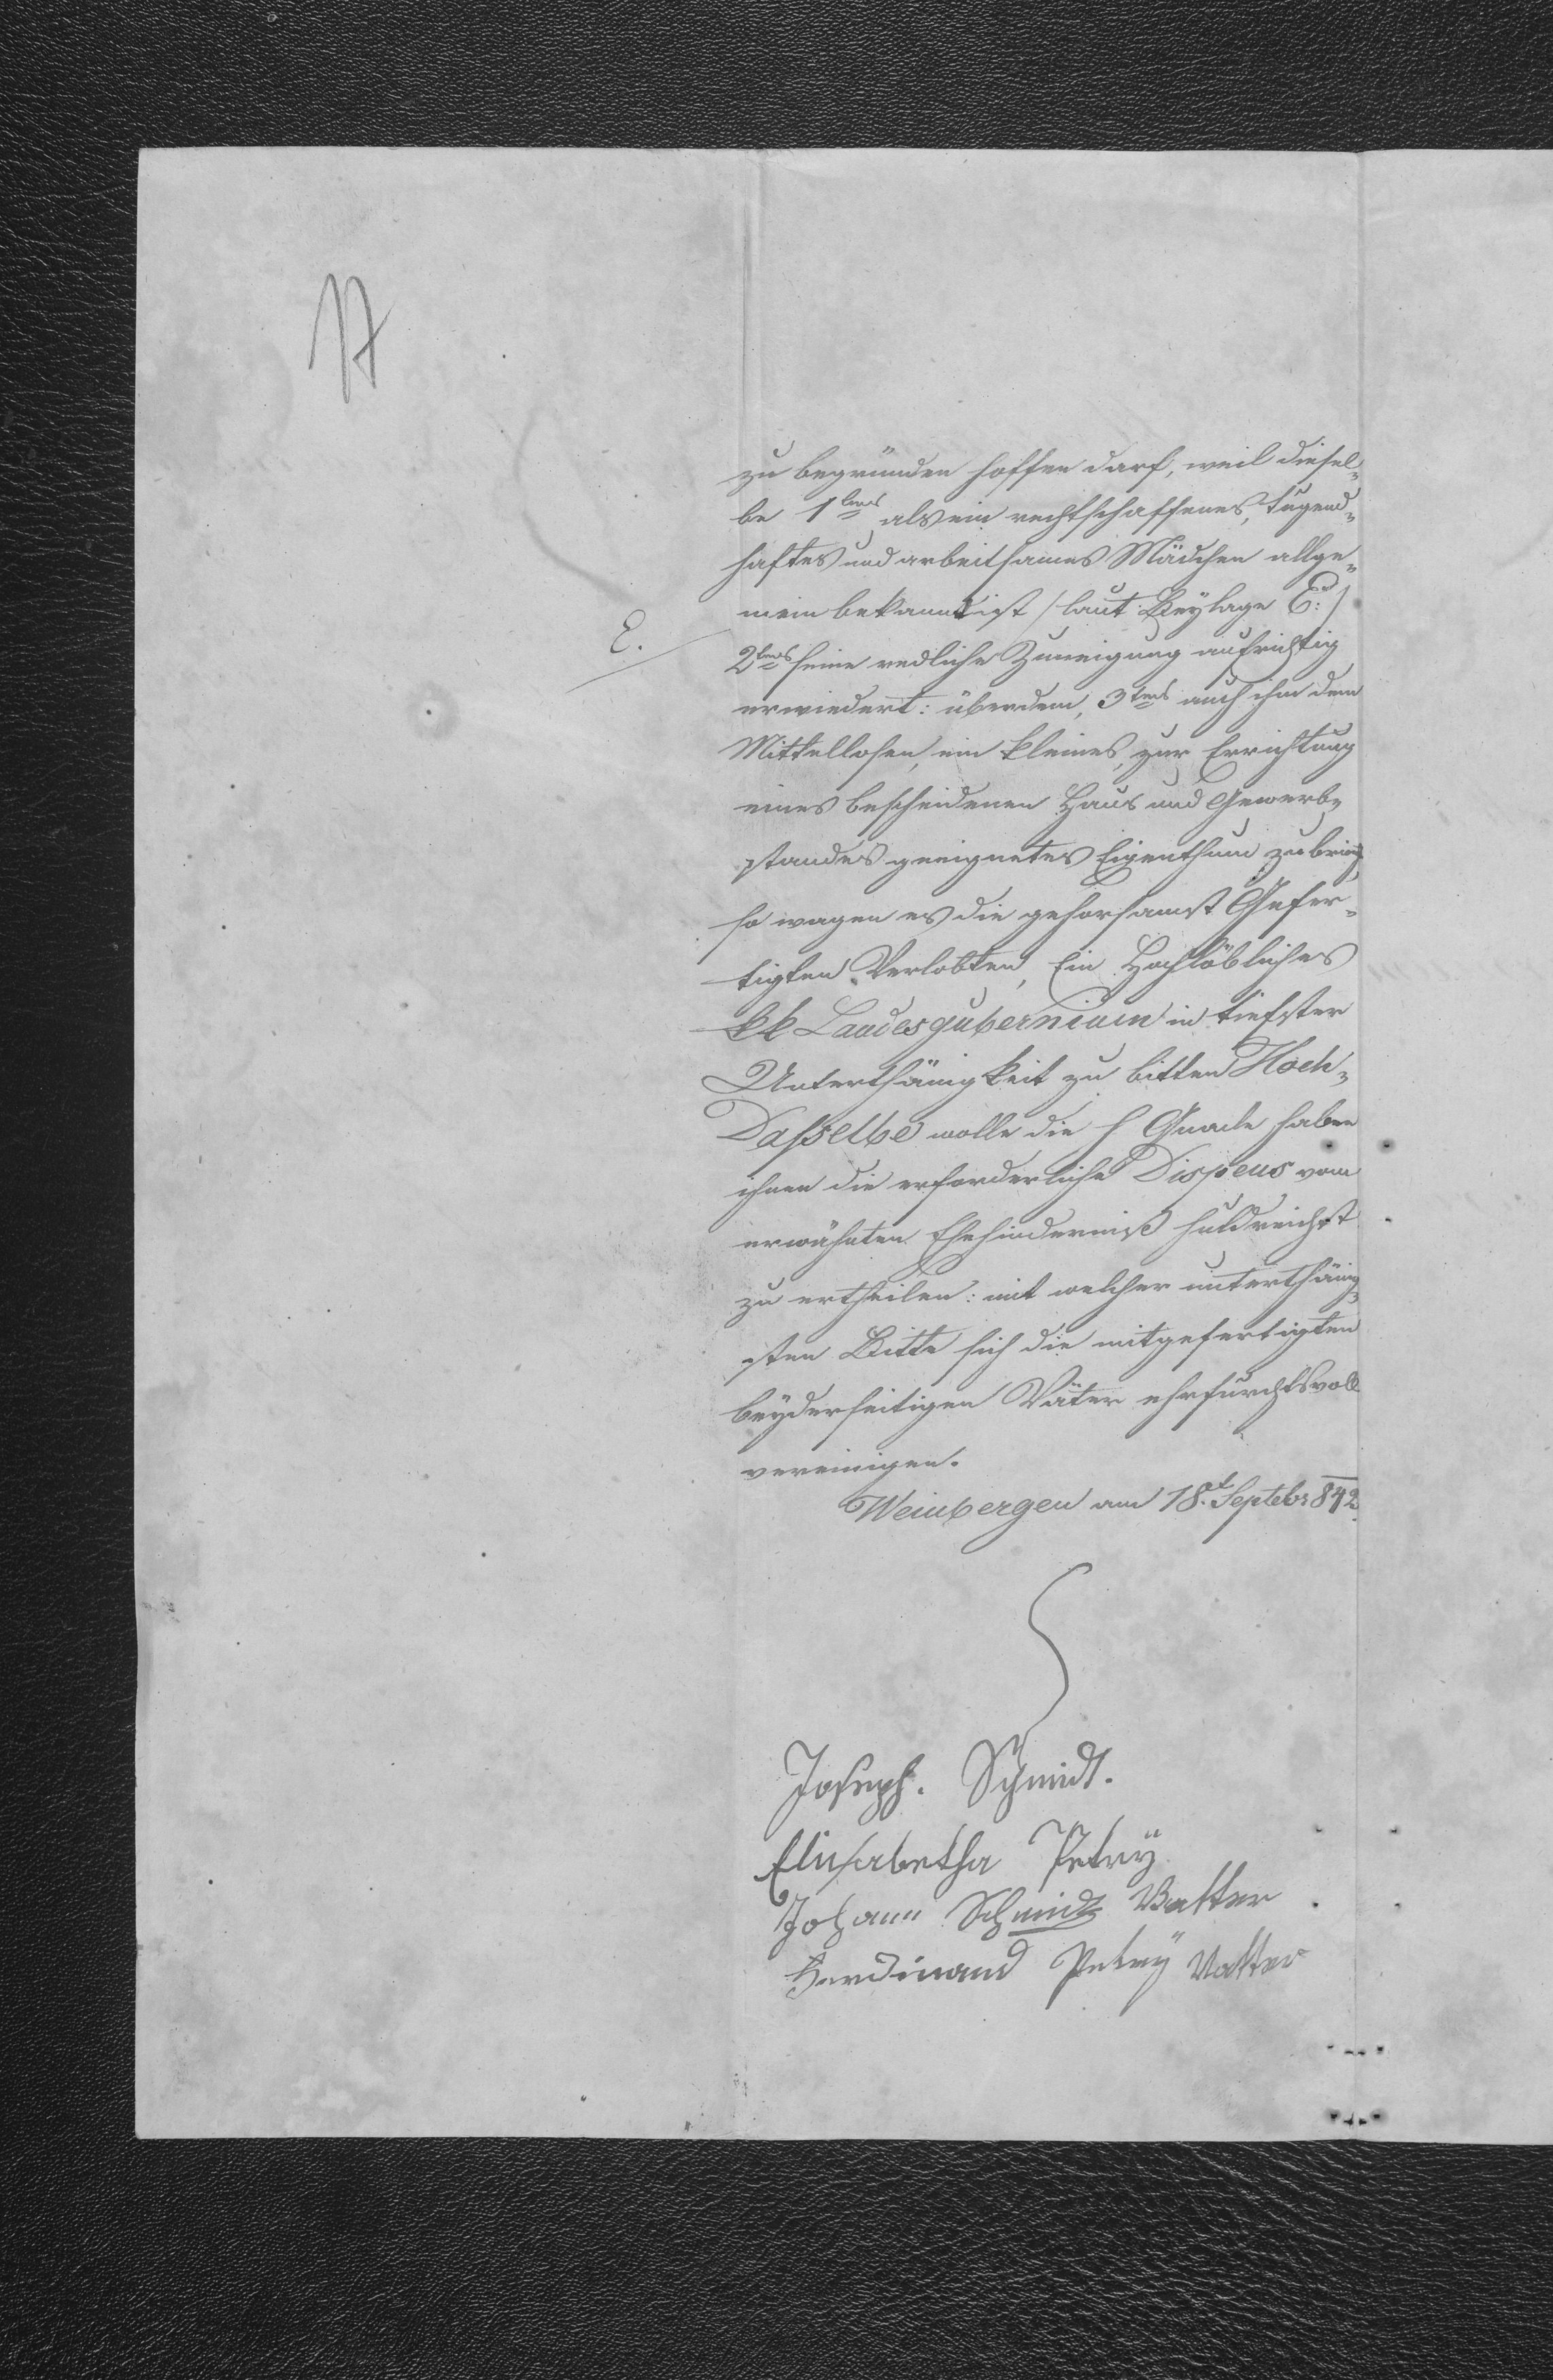 17
zu begründen hoffen darf, weil diesel¬
be 1tens als ein rechtschaffenes, tugend¬
haftes und arbeitsames Mädchen allge¬
mein bekannt ist /: laut Beylage E: /
E.
2tens seine redliche Zuneigung aufrichtig
erwiedert: überdem, 3tens auch ihm dem
Mittellosen, ein kleines, zur Errichtung
eines bescheidenen Haus und Gewerb¬
standes geeignetes Eigenthum zubringt,
so wagen es die gehorsamst Gefer¬
tigten Verlobten, Ein Hochlöbliches
kk Landesgubernium in tiefster
Unterthänigkeit zu bitten Hoch¬
Dasselbe wolle die h Gnade haben
ihnen die erforderliche Dispens vom
erwähnten Ehehinderniß huldreichst
zu ertheilen: mit welcher unterthänig¬
sten Bitte sich die mitgefertigten
beyderseitigen Väter ehrfurchtsvoll
vereinigen.
Weinbergen am 18t. Septebr 842.
Joseph. Schmidt.
Elisabetha Petry
Johann Schmidt Vatter
Ferdinand Petry Vatter